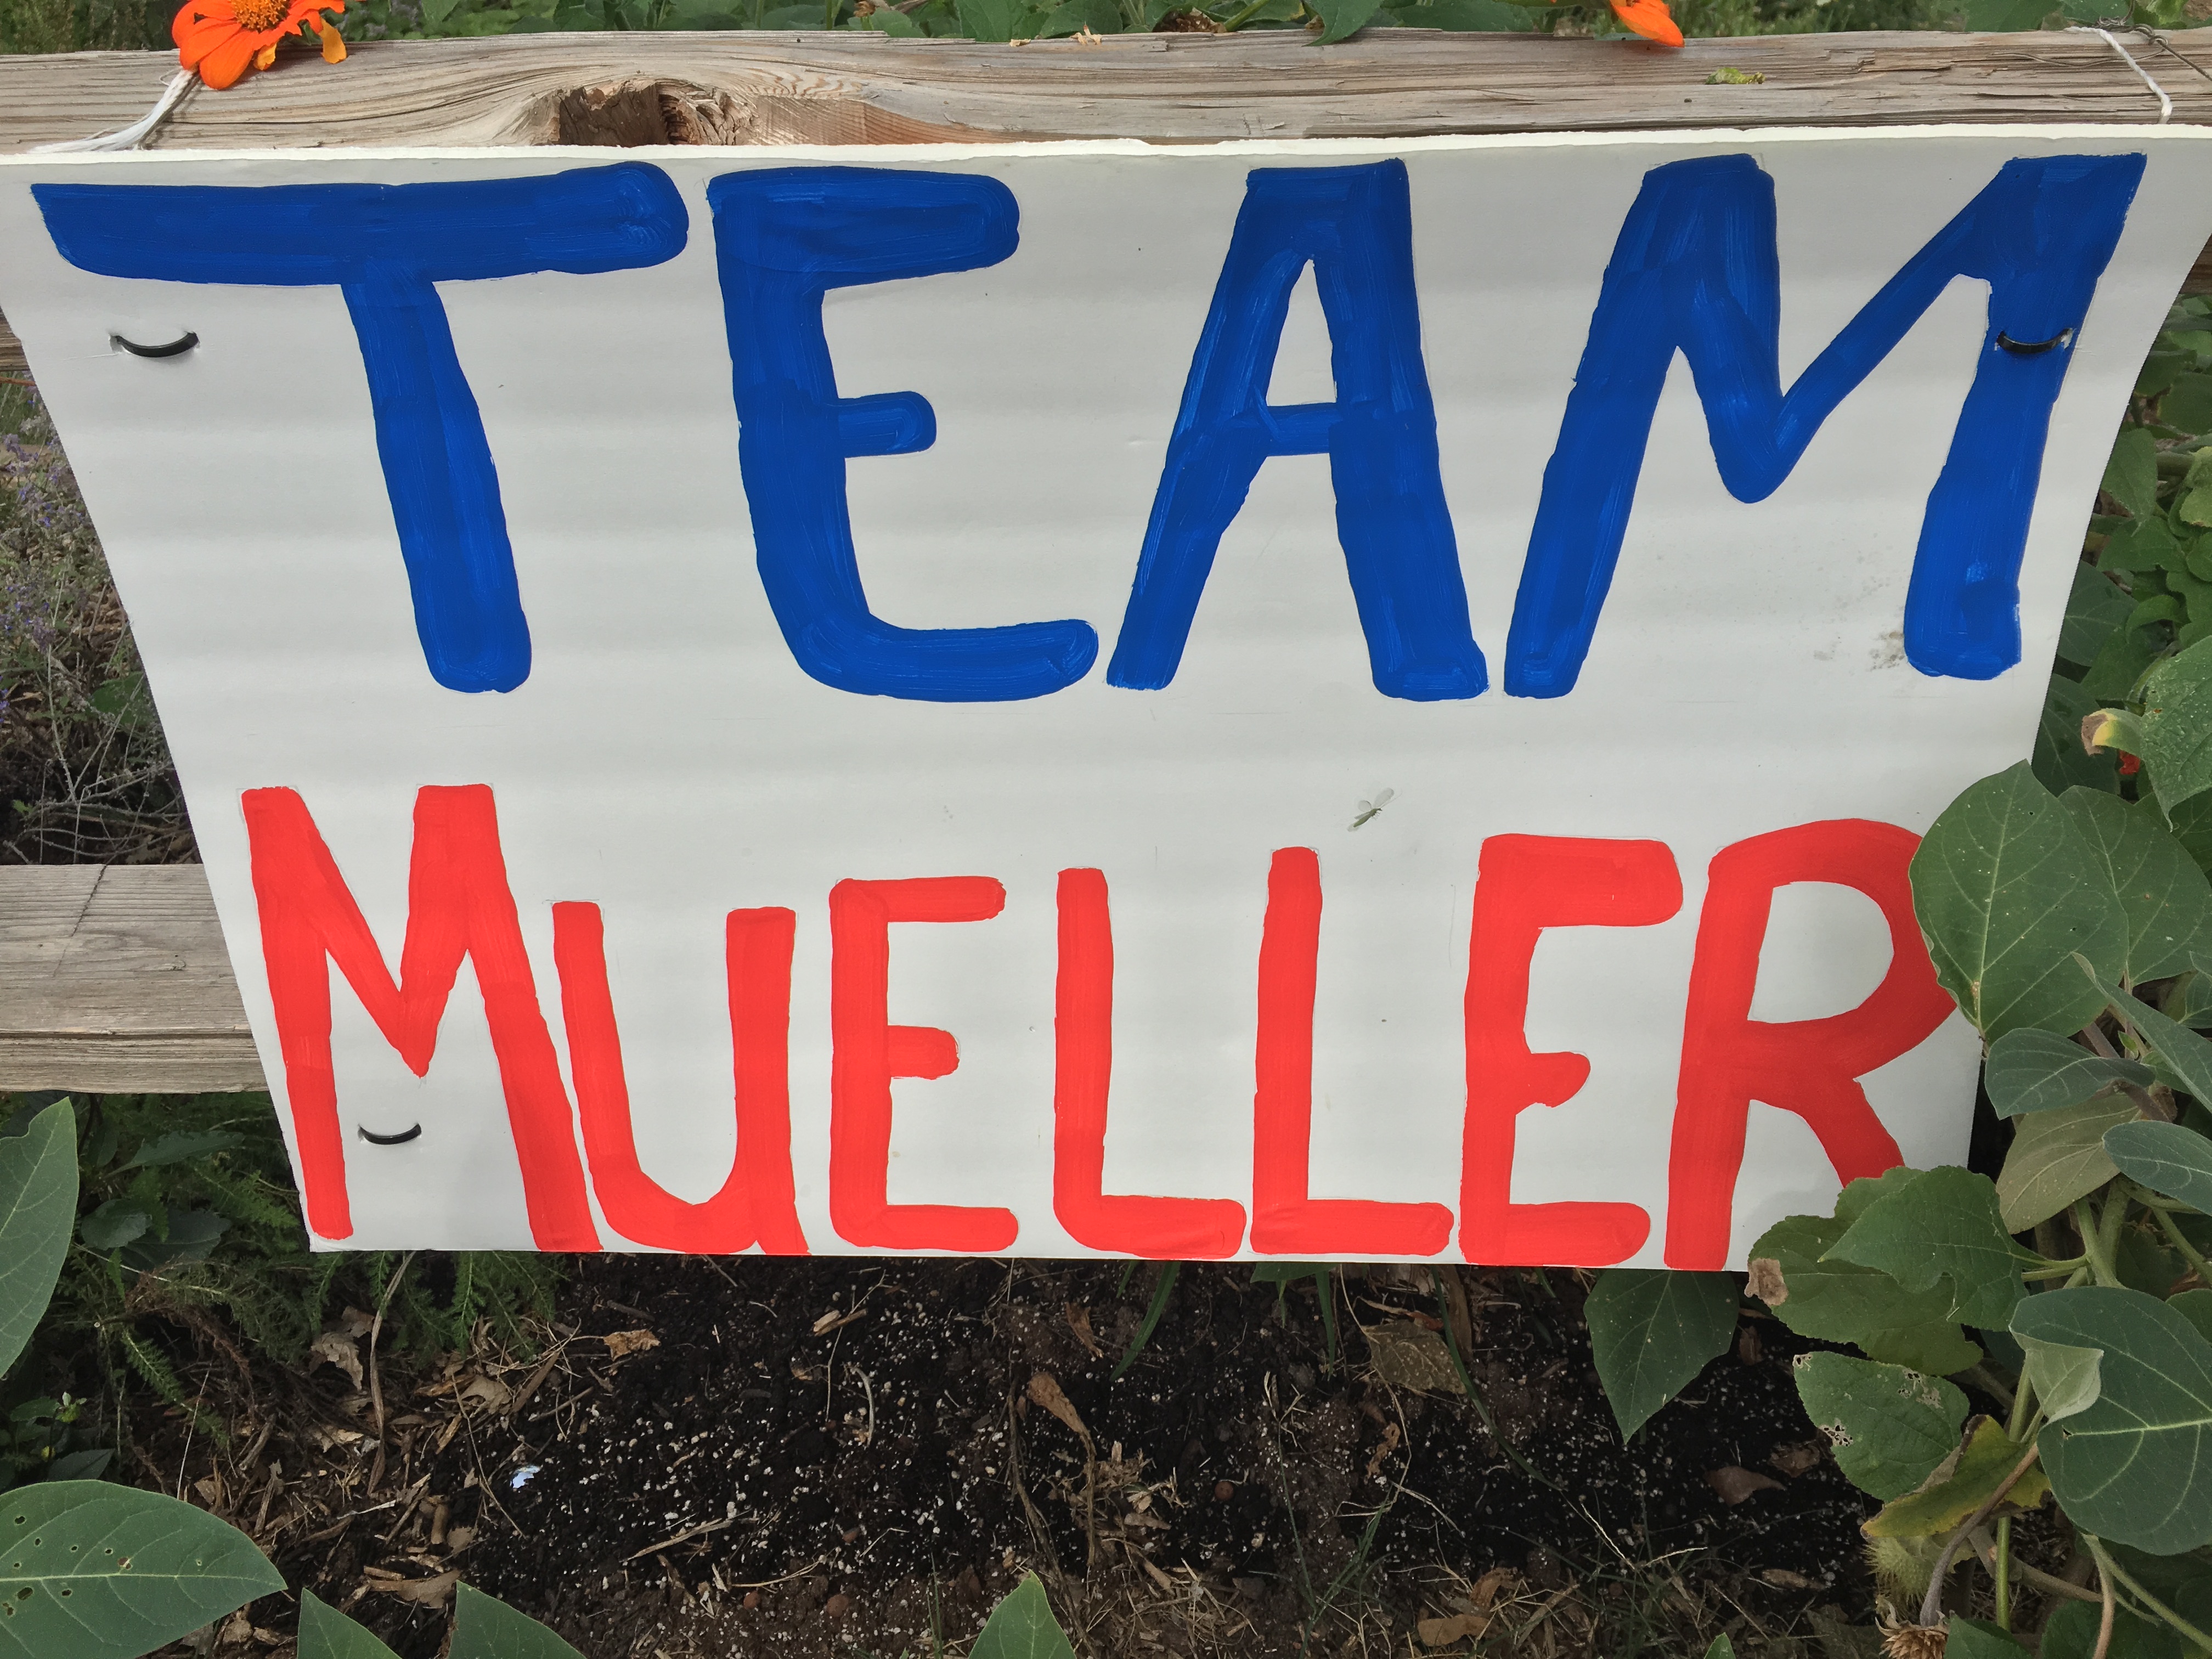 TEAM
MUELLER